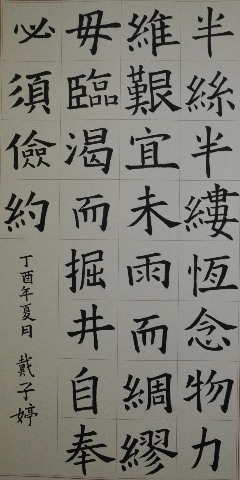 半絲半縷恆念物力
維艱宜未雨而綢繆
毋臨渴而掘井自奉
必須儉約
丁酉年夏月 戴子婷